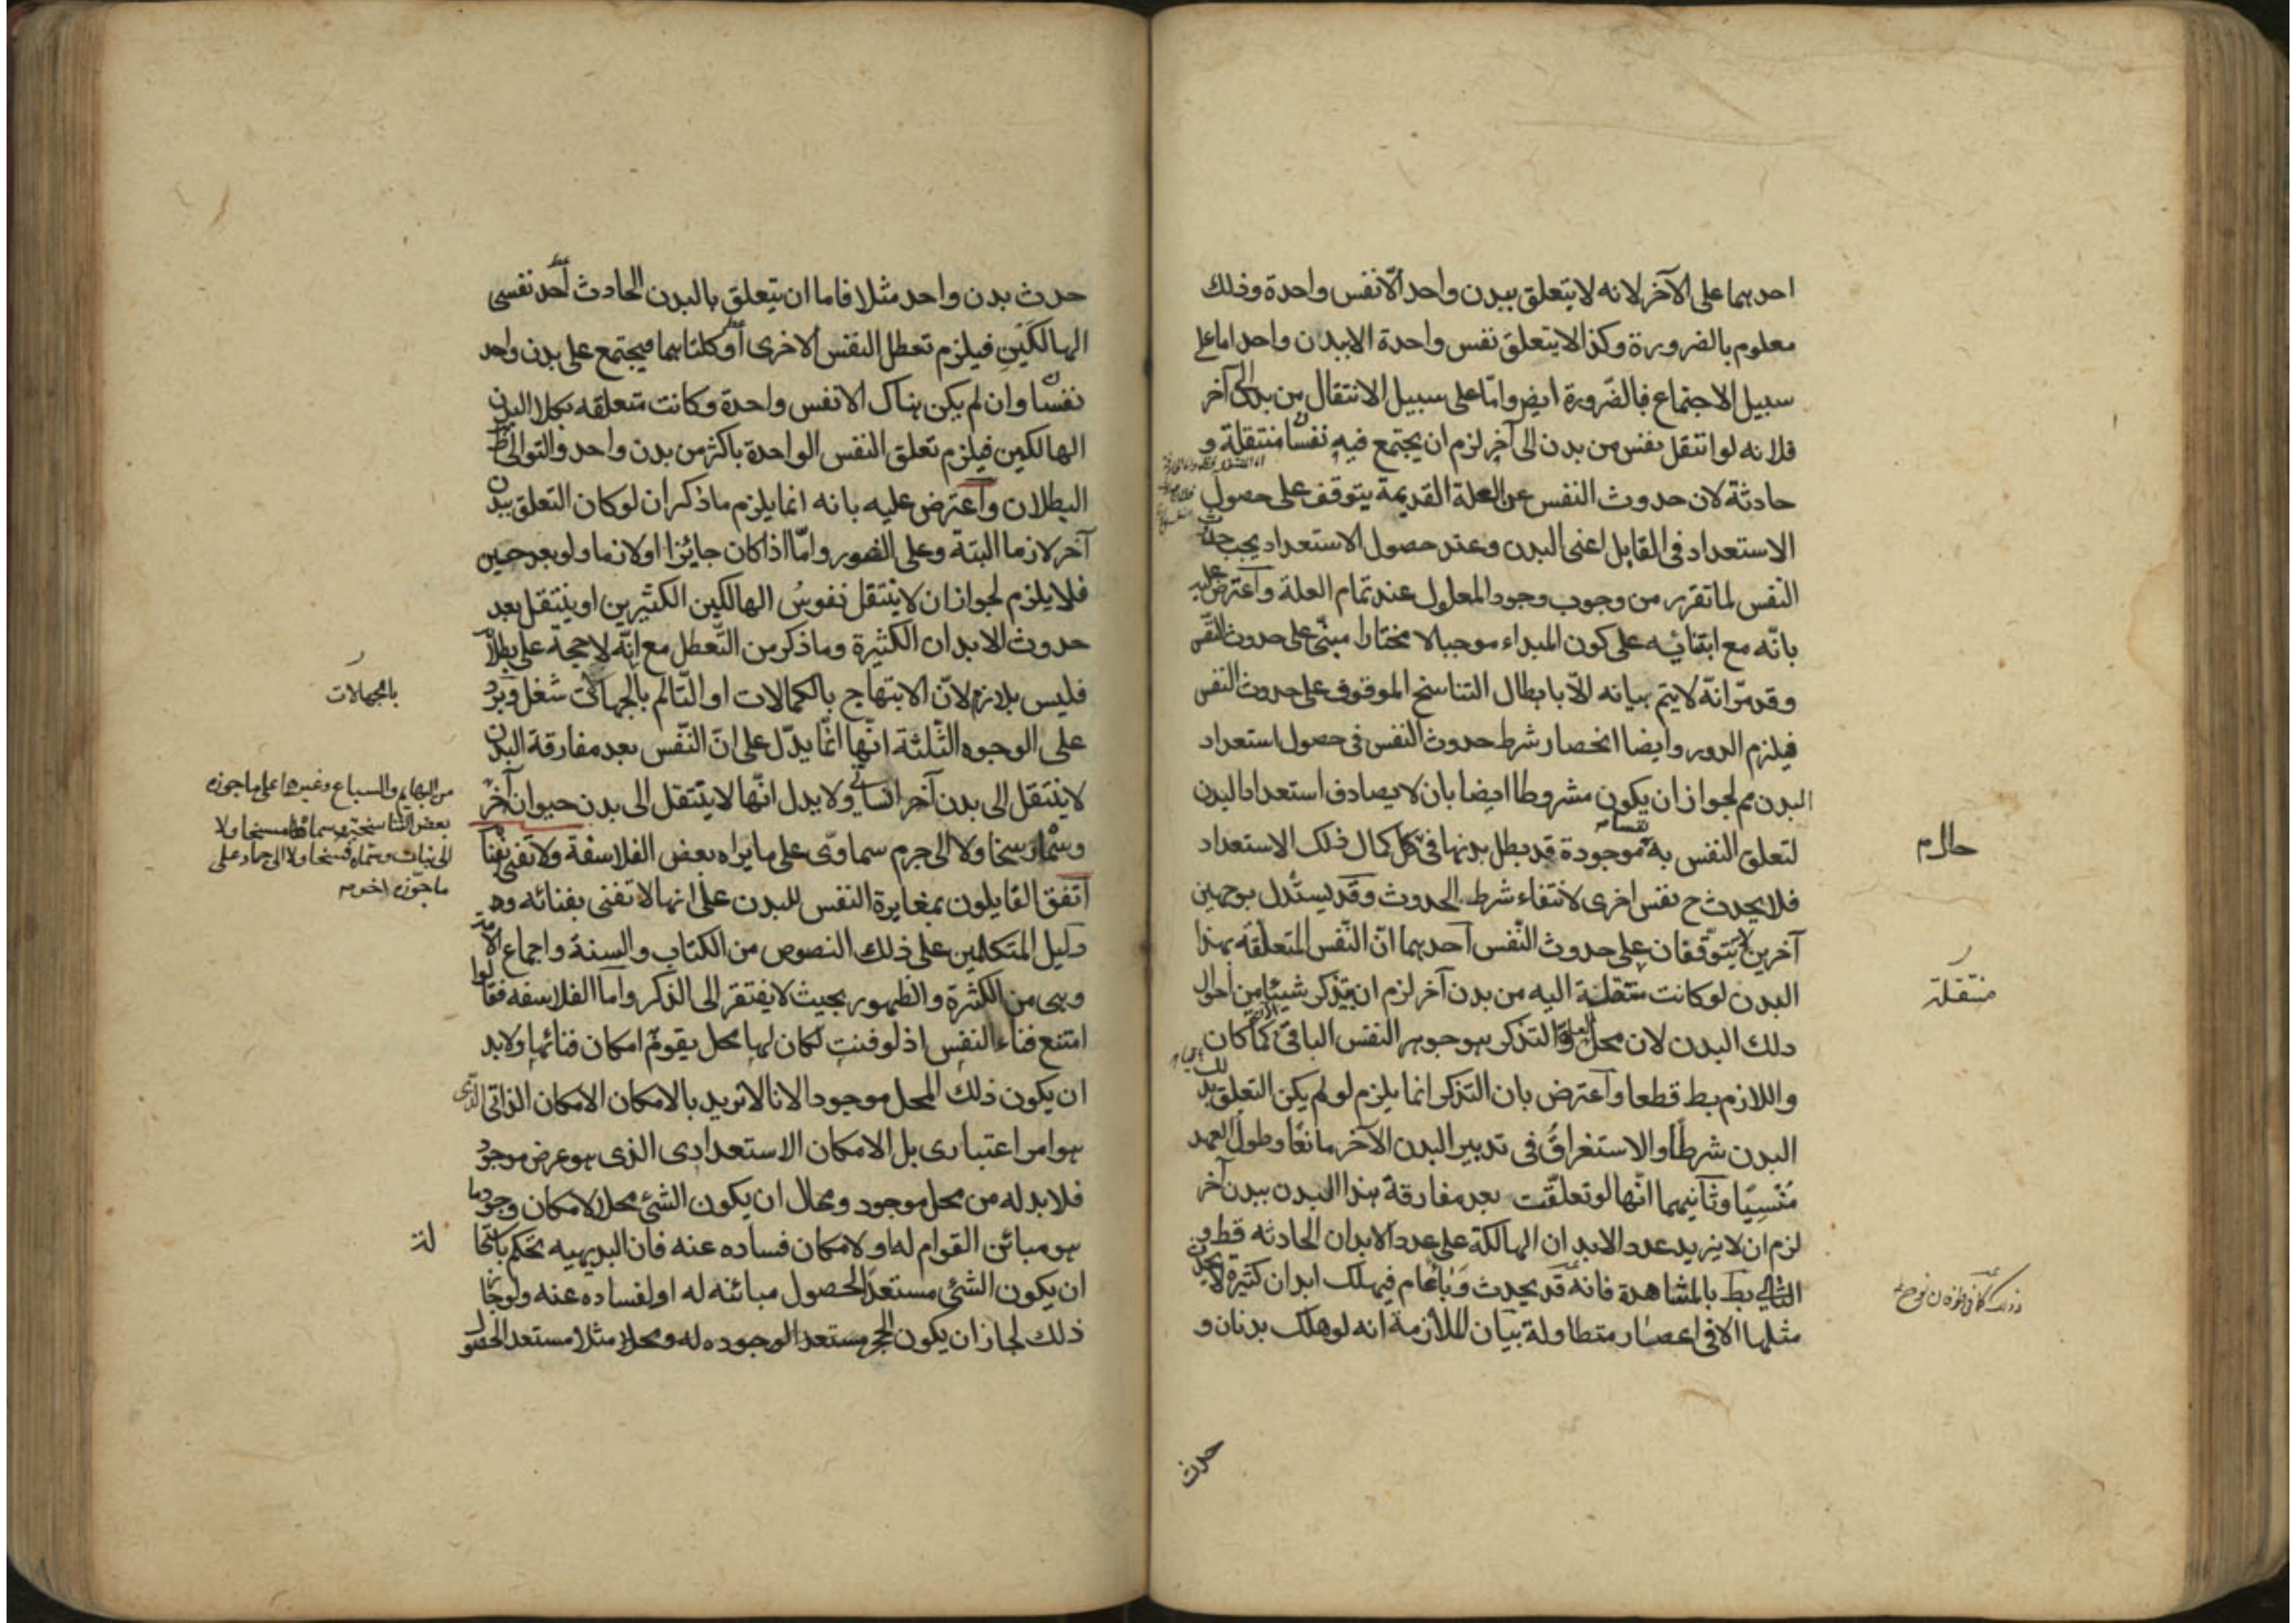 احدهما على الآخر لانه لا يتعلق ببدن واحد الّا نفس واحدة وذلك
معلوم بالضرورة وكذا لا يتعلق نفس واحدة الا ببدن واحد اما على
سبيل الاجتماع فبالضّرورة ايض وامّا على سبيل الانتقال من بدن الى آخر
فلانه لو انتقل نفس من بدن الى آخر لزم ان يجتمع فيه نفسان منتقلة و
حادثة لان حدوث النفس عن العلة القديمة يتوقف على حصول
الاستعداد فى القابل اعنى البدن وعند حصول الاستعداد يجب حدوث
النفس لما تقرر من وجوب وجود المعلول عند تمام العلة واعترض عليه
بانّه مع ابتنائه على كون المبداء موجبا لا مختارا مبنى على حدوث النّفس
وقد مرّ انّه لا يتم بيانه الّا بابطال التناسخ الموقوف على حدوث النفس
فيلزم الدور وايضا انحصار شرط حدوث النفس فى حصول استعداد
البدن مم لجواز ان يكون مشروطا ايضا بان لا يصادف استعداد البدن
لتعلق النفس به نفسا موجودة قد بطل بدنها فى كمال ذلك الاستعداد
حال م
فلا يحدث ح نفس اخرى لانتفاء شرط الحدوث وقد يستدل بوجهين
آخرين لا يتوقفان على حدوث النّفس احدهما انّ النّفس المتعلقة بهذا
البدن لو كانت منتقلة اليه من بدن آخر لزم ان يتذكر شيئا من احوال
منتقلة
ذلك البدن لان محل العلم والتذكر هو جوهر النفس الباقى كما كان
واللازم بط قطعا واعترض بان التذكر انما يلزم لو لم يكن التعلق بذلك
البدن شرطًا والاستغراق فى تدبير البدن الآخر مانعًا وطول العهد
مُنْسِيًا وثانيهما انّها لو تعلقت بعد مفارقة هذا البدن ببدن آخر
لزم ان لا يزيد عدد الابدان الهالكة على عدد الابدان الحادثه قط و
التالى بط بالمشاهدة فانه قد يحدث وباء عام فيهلك ابدان كثيرة لا يحدث
مثلها الا فى اعصار متطاولة بيان الملازمة انه لو هلك بدنان و
حدث
حدث بدن واحد مثلا فاما ان يتعلق بالبدن الحادث احد نفسى
الهالكَيْنِ فيلزم تعطل النفس الاخرى او كلتاهما فيجتمع على بدن واحد
نفسان وان لم يكن هناك الا نفس واحدة وكانت متعلقه بكلا البدن
الهالكين فيلزم تعلق النفس الواحدة باكثر من بدن واحد والتوالى ظ
البطلان واعترض عليه بانه انما يلزم ما ذكر ان لو كان التعلق ببدن
آخر لازما البتة وعلى الفور وامّا اذا كان جائزا او لازما ولو بعد حين
فلا يلزم لجواز ان لا ينتقل نفوسُ الهالكين الكثيرين او ينتقل بعد
حدوث الابدان الكثيرة وما ذكر من التّعطل مع انّه لا حجة على بطلا
فليس بلازم لانّ الابتهاج بالكمالات او التّالم بالجهالات شغل ويرد
بالجهالات
على الوجوه الثّلثة انّها انّما يدّل على انّ النّفس بعد مفارقة البدن
لا ينتقل الى بدن آخر انسانى ولا يدل انّها لا ينتقل الى بدن حيوان آخر
من البهايم والسباع وغيرها على ما جوزه
بعض التناسخية وسماه مسخا ولا
الى نبات وسماه فسخا ولا الى جماد على
ما جوّزه اخر
وسمّاه رسخا ولا الى جرم سماوىّ على ما يراه بعض الفلاسفة ولا تفنى بفنائه
اتفق القايلون بمغايرة النفس للبدن على انها لا تفنى بفنائه و
دليل المتكلمين على ذلك النصوص من الكتاب والسنة واجماع الامة
وهى من الكثرة والظهور بحيث لا يفتقر الى الذكر واما الفلاسفه فقالوا
امتنع فناء النفس اذ لو فنيت لكان لها محل يقوم امكان فنائها ولا بد
ان يكون ذلك المحل موجودا لانا لا نريد بالامكان الامكان الذاتى الذى
هو امر اعتبارى بل الامكان الاستعدادى الذى هو عرض موجود
فلا بد له من محل موجود ومحال ان يكون الشئ محلا لامكان وجود ما
هو مبائن القوام له او لامكان فساده عنه فان البديهيه تحكم باستحا
لة
ان يكون الشئ مستعدا لحصول مبائنه له او لفساده عنه ولو جاز
ذلك لجاز ان يكون الحجر مستعدا لوجوده له ومحلا مثلا مستعد الحصو